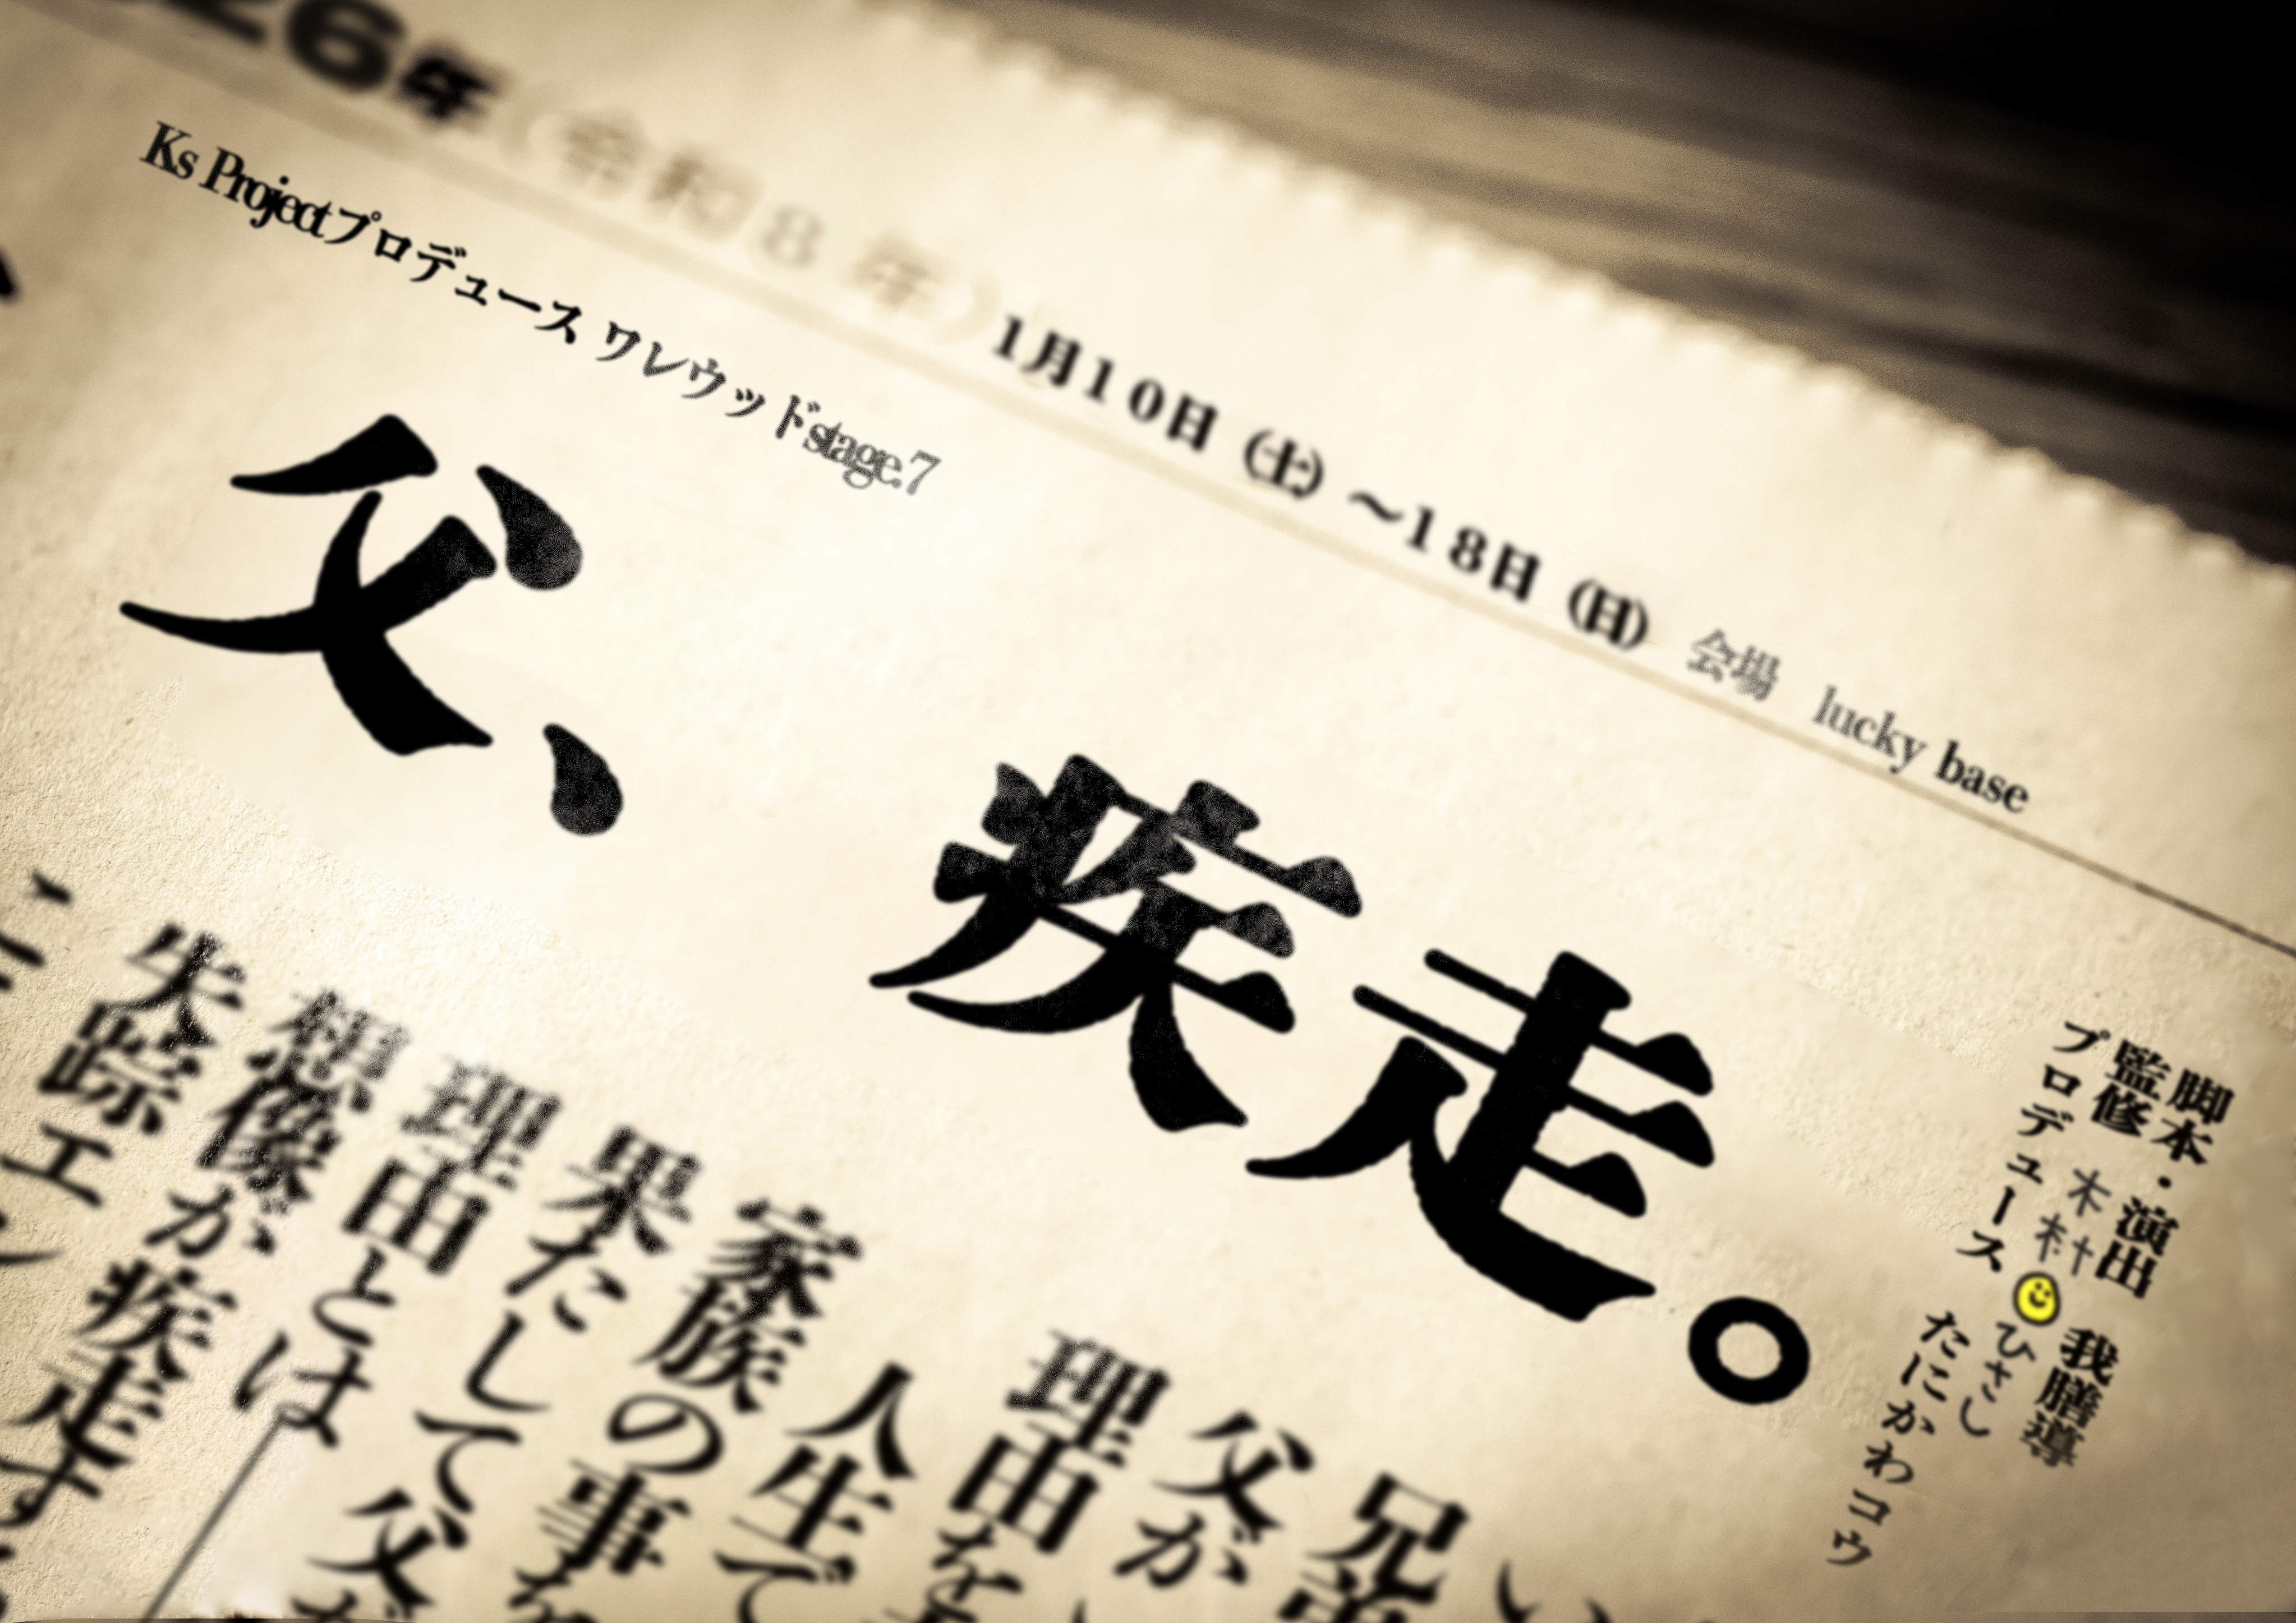 26年（令和8年）1月10日（土）～18日（日） 会場 lucky base
Ks Projectプロデュース ワレウッドstage.7
父、疾走。
脚本・演出 我膳導
監修 木村😊ひさし
プロデュース たにかわコウ
兄
父が
理由を
人生で
家族の事を
果たして父が
理由とは
想像が疾走す
失踪エン